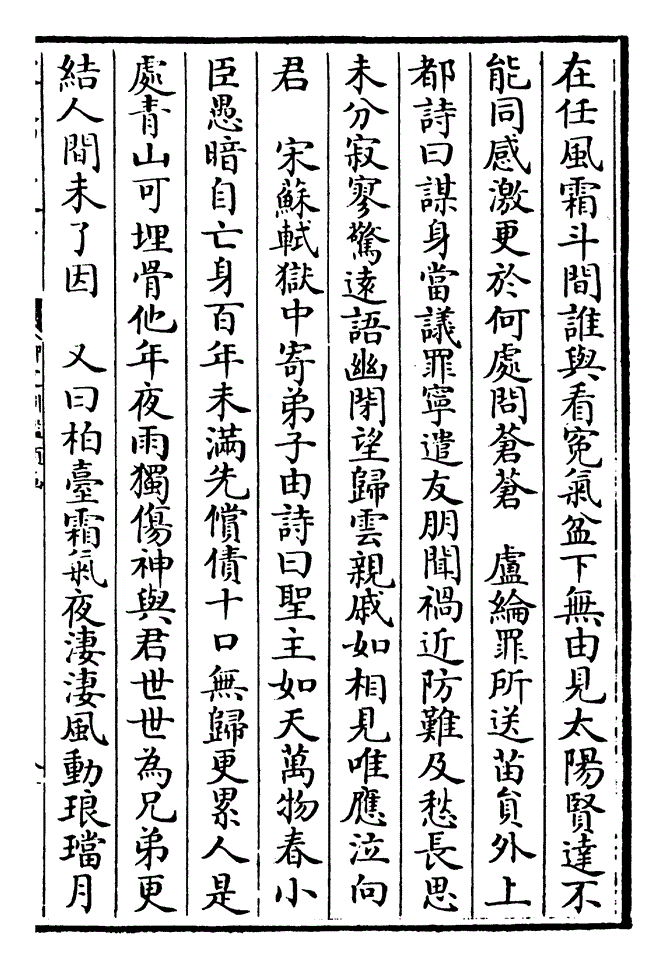 在任風霜斗間誰與看寃氣盆下無由見太陽賢達不
能同感激更於何處問蒼蒼　盧綸罪所送苗員外上
都詩曰謀身當議罪寧遣友朋聞禍近防難及愁長思
未分寂寥驚逺語幽閉望歸雲親戚如相見唯應泣向
君　宋蘇軾獄中寄弟子由詩曰聖主如天萬物春小
臣愚暗自亡身百年未滿先償債十口無歸更累人是
處青山可埋骨他年夜雨獨傷神與君世世為兄弟更
結人間未了因　又曰柏臺霜氣夜淒淒風動琅璫月